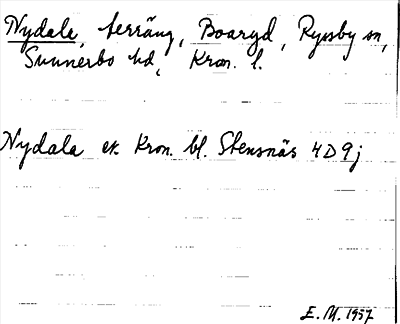 Nydale, terräng, Boaryd, Ryssby sn,
Sunnerbo hd, Kron. l.
Nydala ek. Kron. bl. Stensnäs 4D9j
E. M. 1957